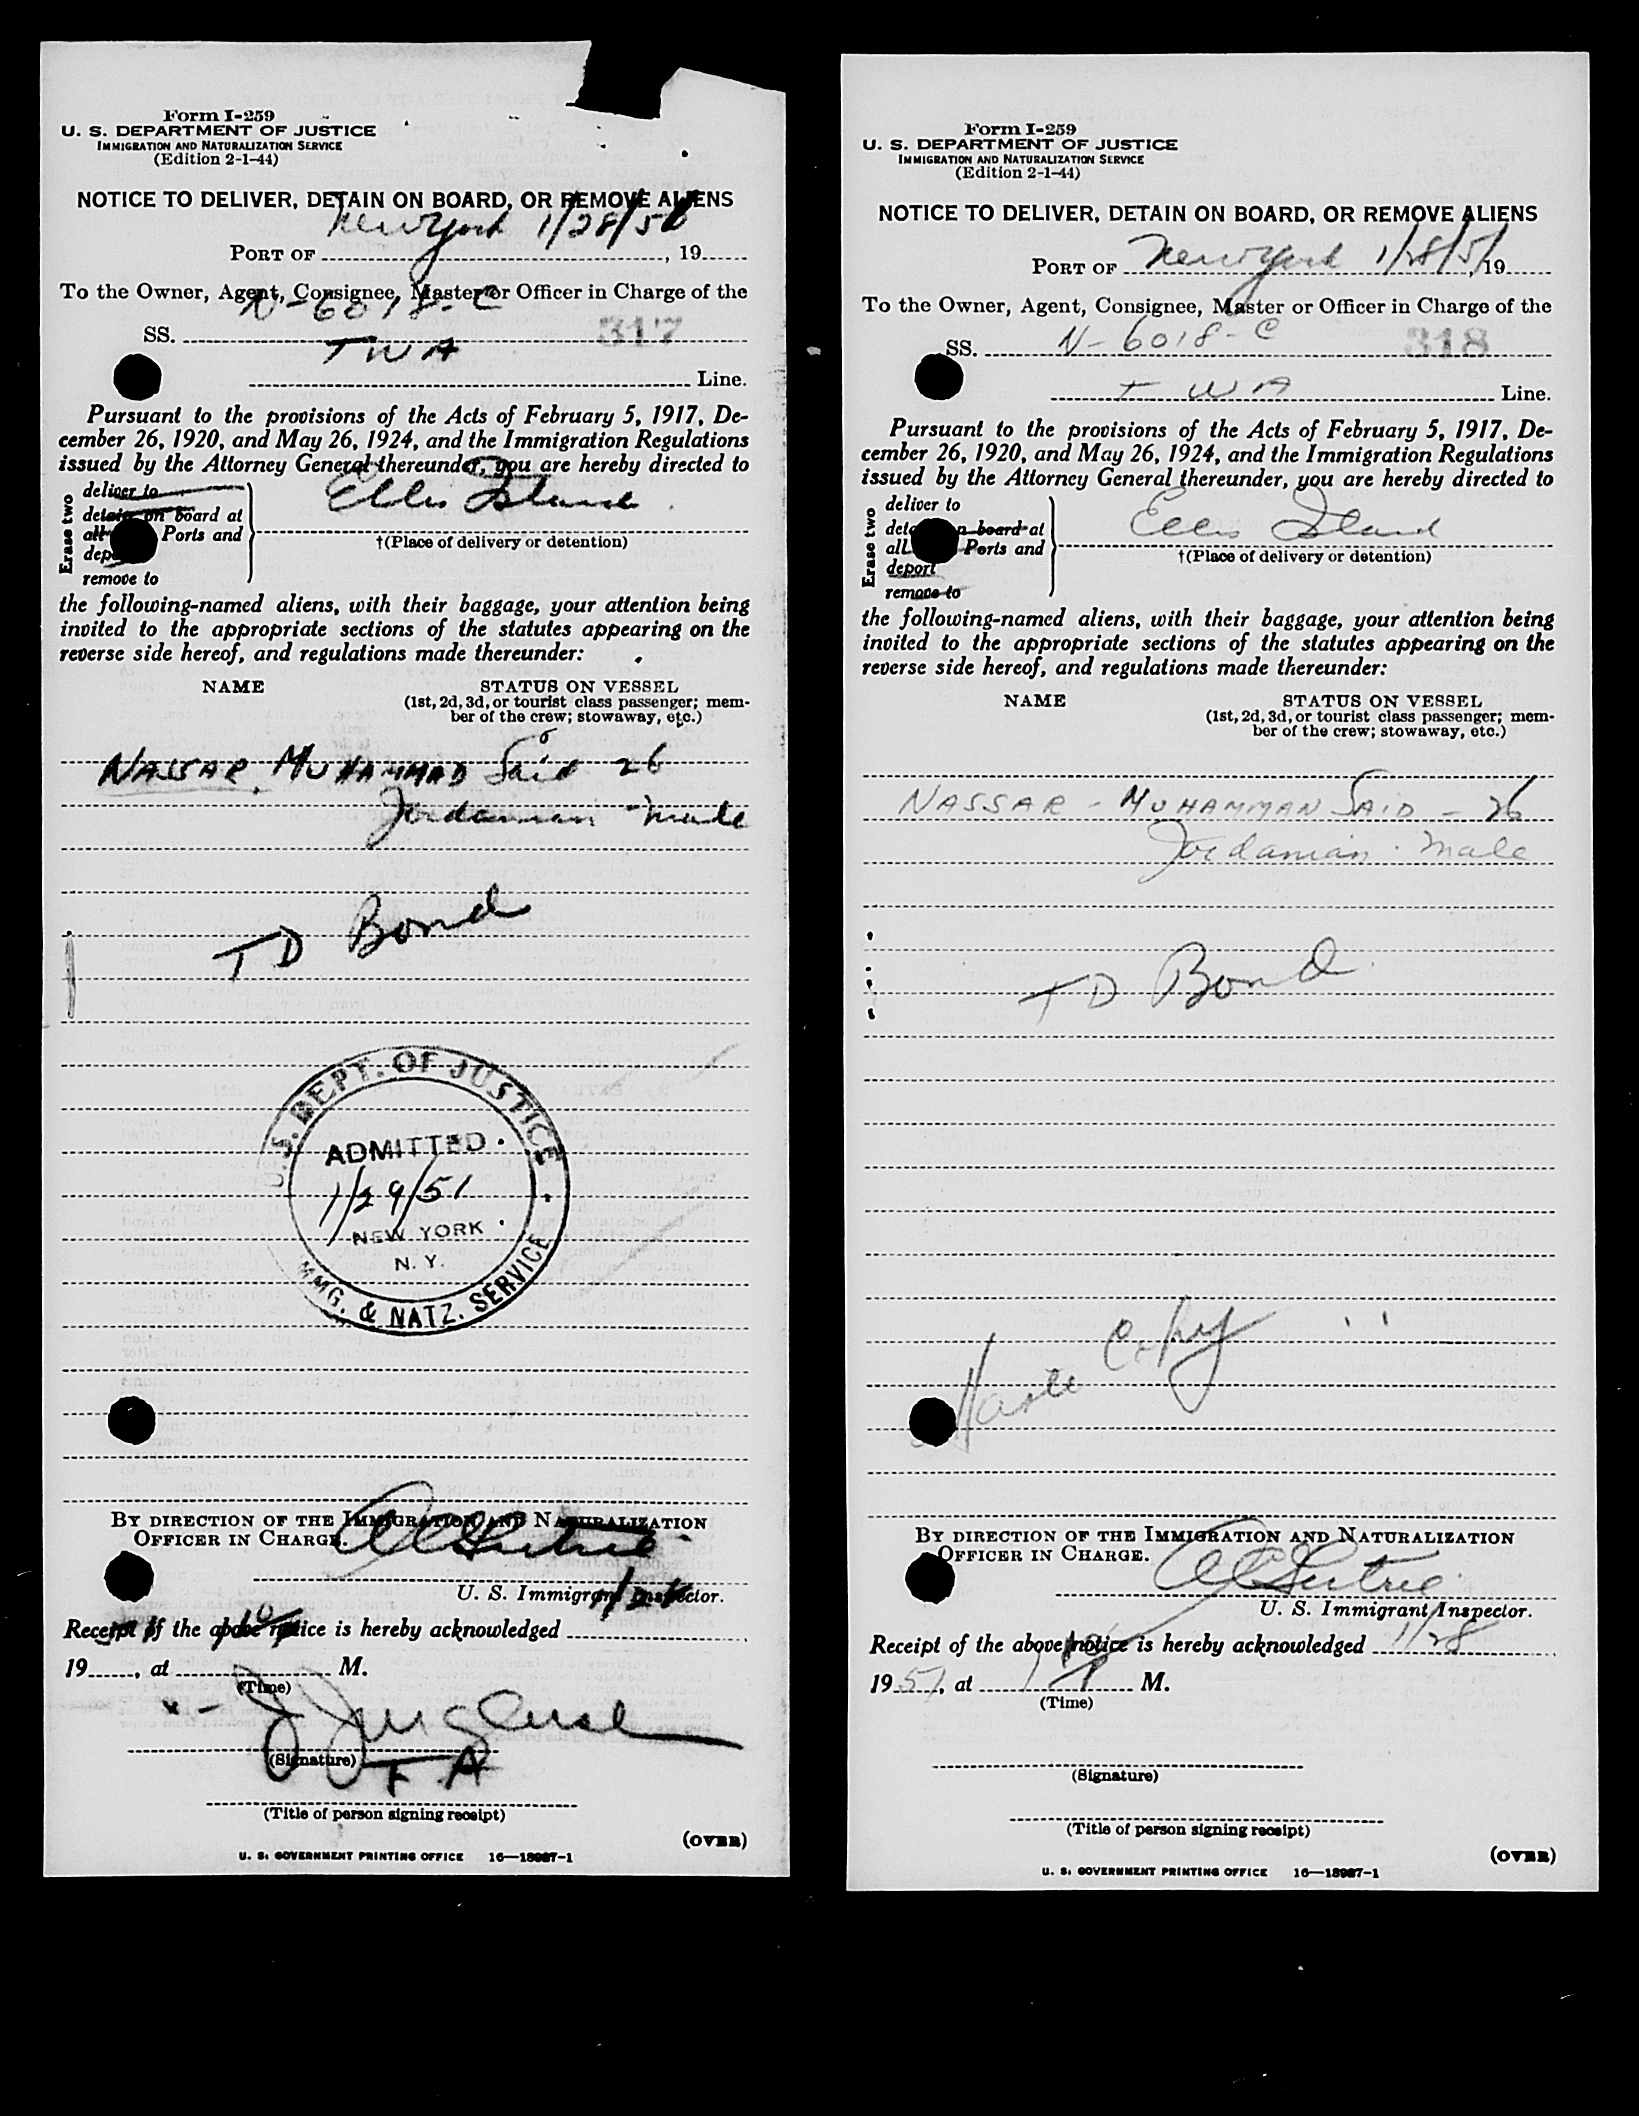 Form I-259
U. S. DEPARTMENT OF JUSTICE
IMMIGRATION AND NATURALIZATION SERVICE
(Edition 2-1-44)
NOTICE TO DELIVER, DETAIN ON BOARD, OR REMOVE ALIENS
New York 1/28/51
PORT OF , 19
To the Owner, Agent, Consignee, Master or Officer in Charge of the
N-6018-C
SS. 317
TWA
Line.
Pursuant to the provisions of the Acts of February 5, 1917, De-
cember 26, 1920, and May 26, 1924, and the Immigration Regulations
issued by the Attorney General thereunder, you are hereby directed to
Erase two
deliver to
detain on board at
all Ports and
remove to
Ellis Island
†(Place of delivery or detention)
the following-named aliens, with their baggage, your attention being
invited to the appropriate sections of the statutes appearing on the
reverse side hereof, and regulations made thereunder:
NAME STATUS ON VESSEL
(1st, 2d, 3d, or tourist class passenger; mem-
ber of the crew; stowaway, etc.)
NASSAR MUHAMMAD Said 26
Jordanian - male
TD Bond
U. S. DEPT. OF JUSTICE
ADMITTED
1/29/51
NEW YORK
N. Y.
IMMG. & NATZ. SERVICE
BY DIRECTION OF THE IMMIGRATION AND NATURALIZATION
OFFICER IN CHARGE.
U. S. Immigrant Inspector.
1/28
Receipt of the above notice is hereby acknowledged
19 , at M.
(Time)
(Signature)
(Title of person signing receipt)
(OVER)
U. S. GOVERNMENT PRINTING OFFICE 16—18987-1
Form I-259
U. S. DEPARTMENT OF JUSTICE
IMMIGRATION AND NATURALIZATION SERVICE
(Edition 2-1-44)
NOTICE TO DELIVER, DETAIN ON BOARD, OR REMOVE ALIENS
PORT OF New York 1/28/51 19
To the Owner, Agent, Consignee, Master or Officer in Charge of the
SS. N-6018-C 318
TWA Line.
Pursuant to the provisions of the Acts of February 5, 1917, De-
cember 26, 1920, and May 26, 1924, and the Immigration Regulations
issued by the Attorney General thereunder, you are hereby directed to
Erase two
deliver to
detain on board at
all Ports and
deport
remove to
Ellis Island
†(Place of delivery or detention)
the following-named aliens, with their baggage, your attention being
invited to the appropriate sections of the statutes appearing on the
reverse side hereof, and regulations made thereunder:
NAME STATUS ON VESSEL
(1st, 2d, 3d, or tourist class passenger; mem-
ber of the crew; stowaway, etc.)
NASSAR - MUHAMMAN SAID - 26
Jordanian - male
TD Bond
Copy
BY DIRECTION OF THE IMMIGRATION AND NATURALIZATION
OFFICER IN CHARGE.
U. S. Immigrant Inspector.
Receipt of the above notice is hereby acknowledged 1/28
1951, at M.
(Time)
(Signature)
(Title of person signing receipt)
(OVER)
U. S. GOVERNMENT PRINTING OFFICE 16—18987-1